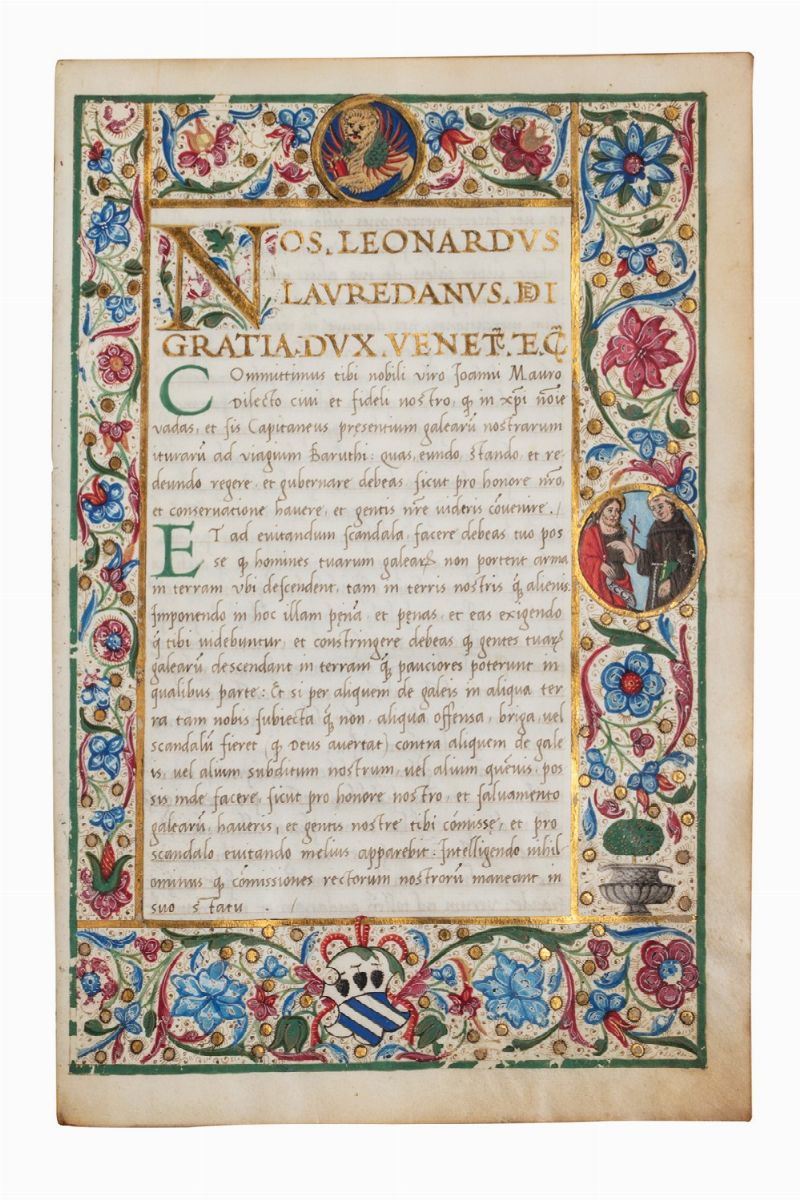 NOS. LEONARDVS
LAVREDANVS. DEI
GRATIA. DVX. VENETR. E.CꝪ
COmmittimus tibi nobili viro Joanni Mauro
Dilecto ciui et fideli nostro, ꝙ in xp̄i nōie
vadas, et sis Capitaneus presentium galearū nostrarum
iturarū ad viagium Baruthi: quas, eundo, stando, et re-
deundo regere, et gubernare debeas sicut pro honore nr̄o,
et conseruatione hauere, et gentis nr̄e videris cōuenire. /
ET ad euitandum scandala, facere debeas tuo pos
se ꝙ homines tuarum galearꝝ non portent arma
in terram vbi descendent, tam in terris nostris ꝙ̄ alienis.
Imponendo in hoc illam penā, et penas, et eas exigendo
q̄ tibi uidebuntur, et constringere debeas ꝙ gentes tuarꝝ
galearū descendant in terram ꝙ̄ pauciores poterunt in
qualibus parte: Et si per aliquem de galeis in aliqua ter
ra tam nobis subiecta ꝙ̄ non, aliqua offensa, briga, vel
scandalū fieret (ꝙ Deus auertat) contra aliquem de gale
is, vel alium subditum nostrum, vel alium quēuis, pos
sis inde facere, sicut pro honore nostro, et saluamento
galearū, haueris, et gentis nostre tibi cōmissę, et pro
scandalo euitando melius apparebit: Intelligendo nihil
ominus ꝙ cōmissiones rectorum nostrorū maneant in
suo statu. /